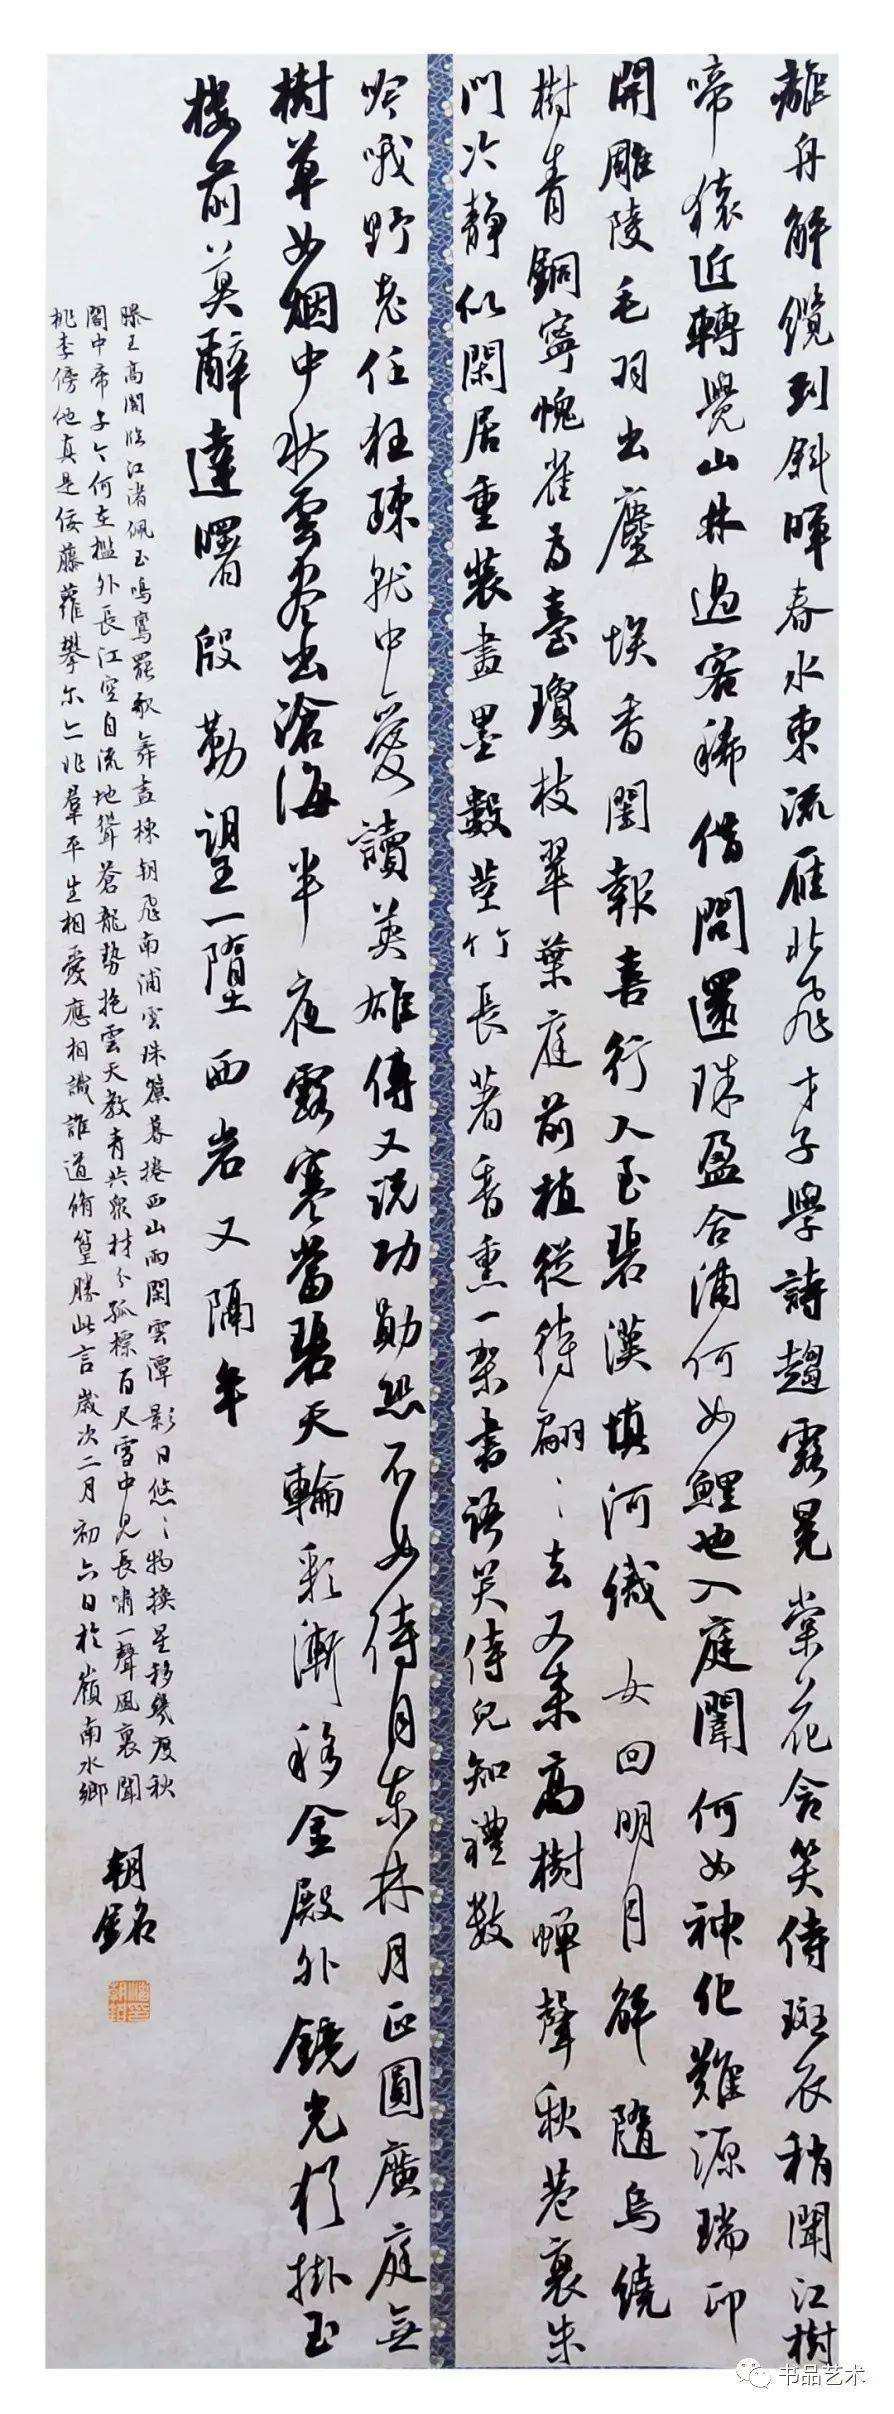 離舟解纜到斜暉春水東流雁北飛才子學詩趨露冕棠花含笑侍斑衣稍聞江樹
啼猿近轉覺山林過客稀借問還珠盈合浦何如鯉也入庭闈何如神化難源瑞印
開雕陵毛羽出塵埃香閨報喜行人至碧漢填河織女回明月解隨烏繞
樹青銅寧愧雀為臺瓊枝翠葉庭前植從待翩〻去又來高樹蟬聲秋巷裏朱
門冷靜似閑居重裝畫墨數莖竹長著香熏一架書語笑侍兒知禮數
吟哦野老任狂疎就中愛讀英雄傳又說功勛恐不如待月東林月正圓廣庭無
樹草如烟中秋雲盡出滄海半夜露寒當碧天輪彩漸移金殿外鏡光猶掛玉
樓前莫辭達曙殷勤望一墮西岩又隔年
滕王高閣臨江渚佩玉鳴鸞罷歌舞畫棟朝飛南浦雲珠簾暮捲西山雨閑雲潭影日悠〻物換星移幾度秋
閣中帝子今何在檻外長江空自流地聳蒼龍勢抱雲天教青共眾材分孤標百尺雪中見長嘯一聲風裏聞
桃李傍他真是佞藤蘿攀尔亦非羣平生相愛應相識誰道脩篁勝此君歲次二月初六日於嶺南水鄉
朝銘
书品艺术